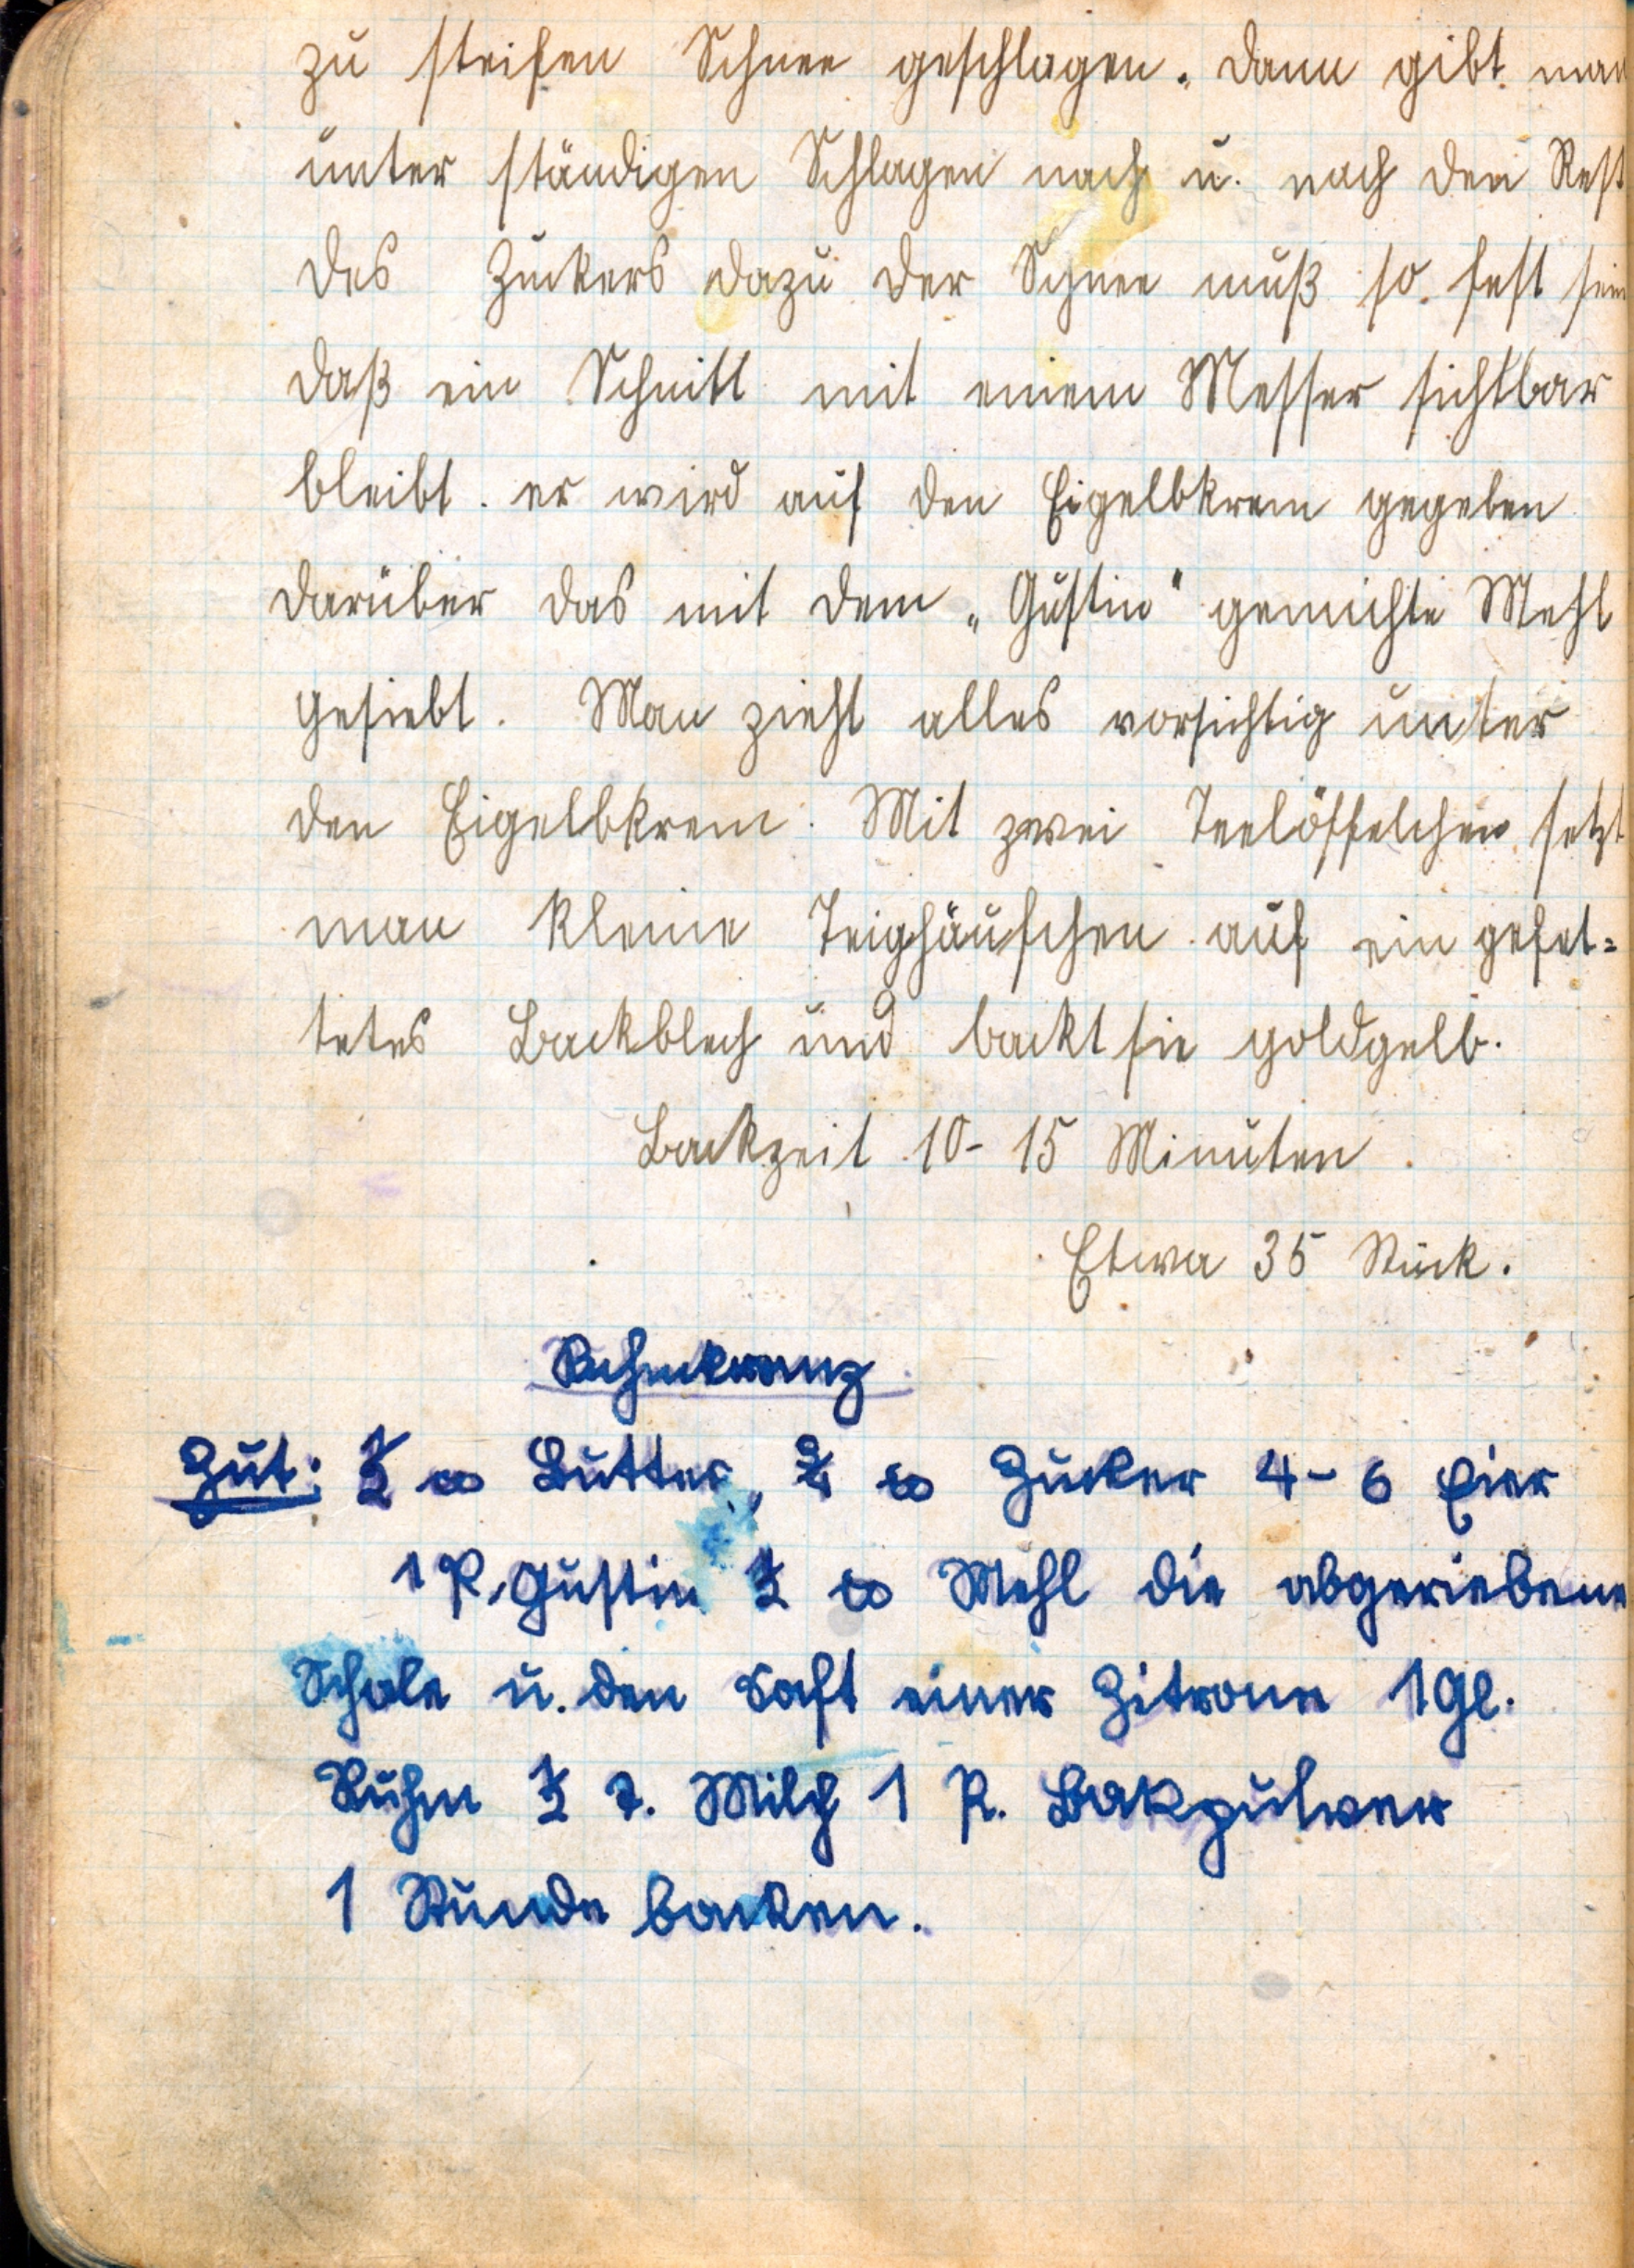 zu steifen Schnee geschlagen. Dann gibt man
unter ständigen Schlagen nach u. nach den Rest
des Zuckers dazu der Schnee muß so fest sein
daß ein Schnitt mit einem Messer sichtbar
bleibt. er wird auf den Eigelbkrem gegeben
darüber das mit dem „Gustin" gemichte Mehl
gesiebt. Man zieht alles vorsichtig unter
den Eigelbkrem. Mit zwei Teelöffelchen setzt
man kleine Teighäufchen auf ein gefet=
tetes Backblech und backt sie goldgelb.
Backzeit 10-15 Minuten.
Etwa 35 Stück.
Zut: ½ ℔ Butter, ¾ ℔ Zucker 4-6 Eier
1 P. Gustin ½ ℔ Mehl die abgeriebene
Schale u. den Saft einer Zitrone 1 Gl.
Ruhm ½ T. Milch 1 P. Bakpulver
1 Stunde backen.